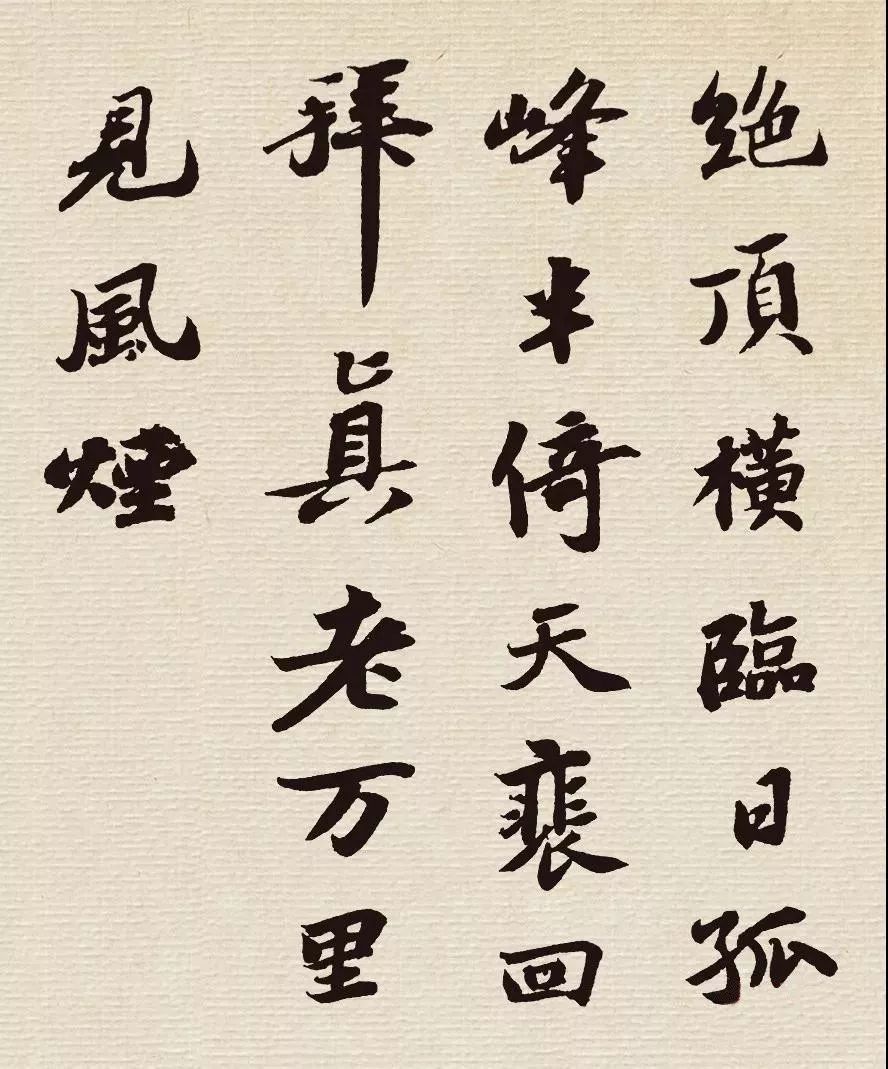 絶頂横臨日孤
峰半倚天裴回
拜真老万里
見風煙